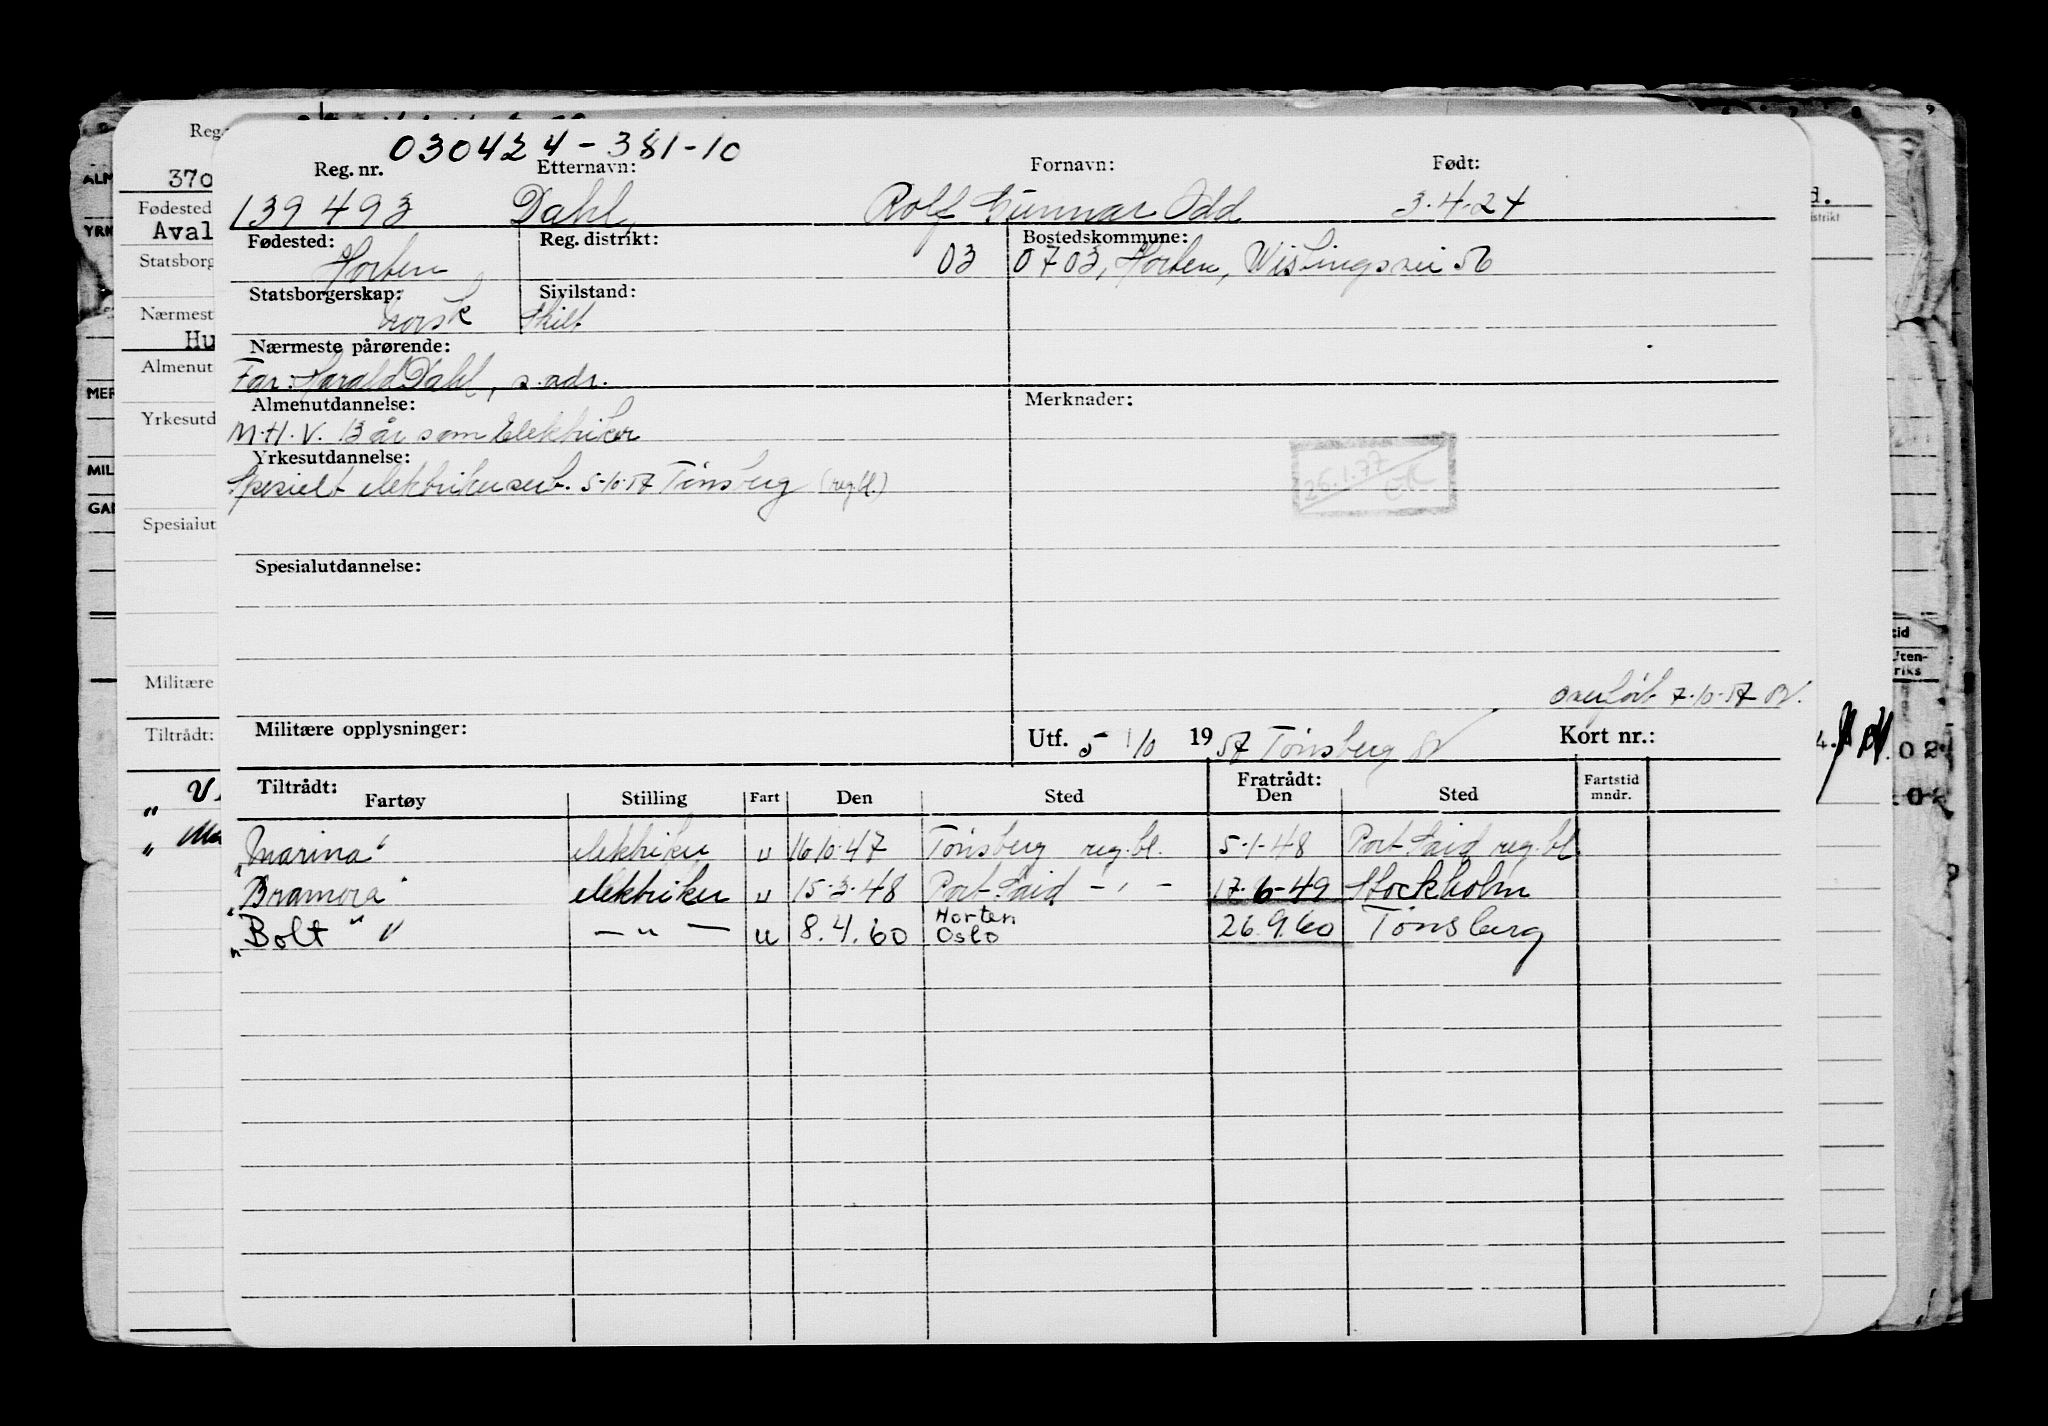 030424-381-10
Reg. nr. Etternavn: Fornavn: Født:
139493 Dahl, Rolf Gunnar Odd 3.4.24
Fødested: Reg. distrikt: Bostedskommune:
Horten 03 0703, Horten, Wistingsvei 56
Statsborgerskap: Sivilstand:
norsk Skilt
Nærmeste pårørende:
Far: Harald Dahl, s.adr.
Almenutdannelse: Merknader:
M.H.V. 13 år som Elektriker
Yrkesutdannelse:
Spesielt elektrikersert. 5-10-57 Tønsberg (reg.bl.)
26.1.77
Spesialutdannelse:
overført 7-10-57
Militære opplysninger: Utf. 5/10 1957 Tønsberg Kort nr.:
Tiltrådt: Fratrådt: Fartstid
Fartøy Stilling Fart Den Sted Den Sted mndr.
"Marina" elektriker u 16.10.47 Tønsberg reg.bl. 5-1-48 Port Said reg.bl.
"Bramora" elektriker u 15.3.48 Port Said -"- 17-6-49 Stockholm
"Bolt" -"- u 8.4.60 Horten Oslo 26.9.60 Tønsberg
Reg
370
Fødested
Aval
Statsborg
Nærmest
Hu
Almenut
Yrkesutd
Spesialut
Militære
Tiltrådt:
ALM
YRK
MER
MIL
GAN
d.
istrikt
tid
Uten-
riks
02